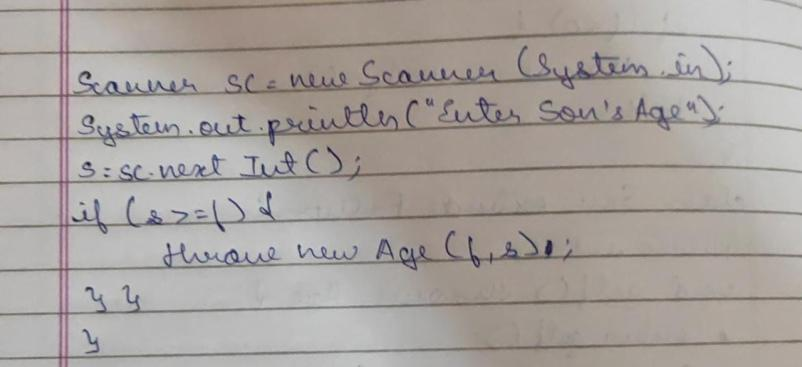 Scanner sc = new Scanner (System.in);
System.out.println("Enter Son's Age");
s = sc.next Int();
if (s >= f) {
throw new Age (f, s);
} }
}